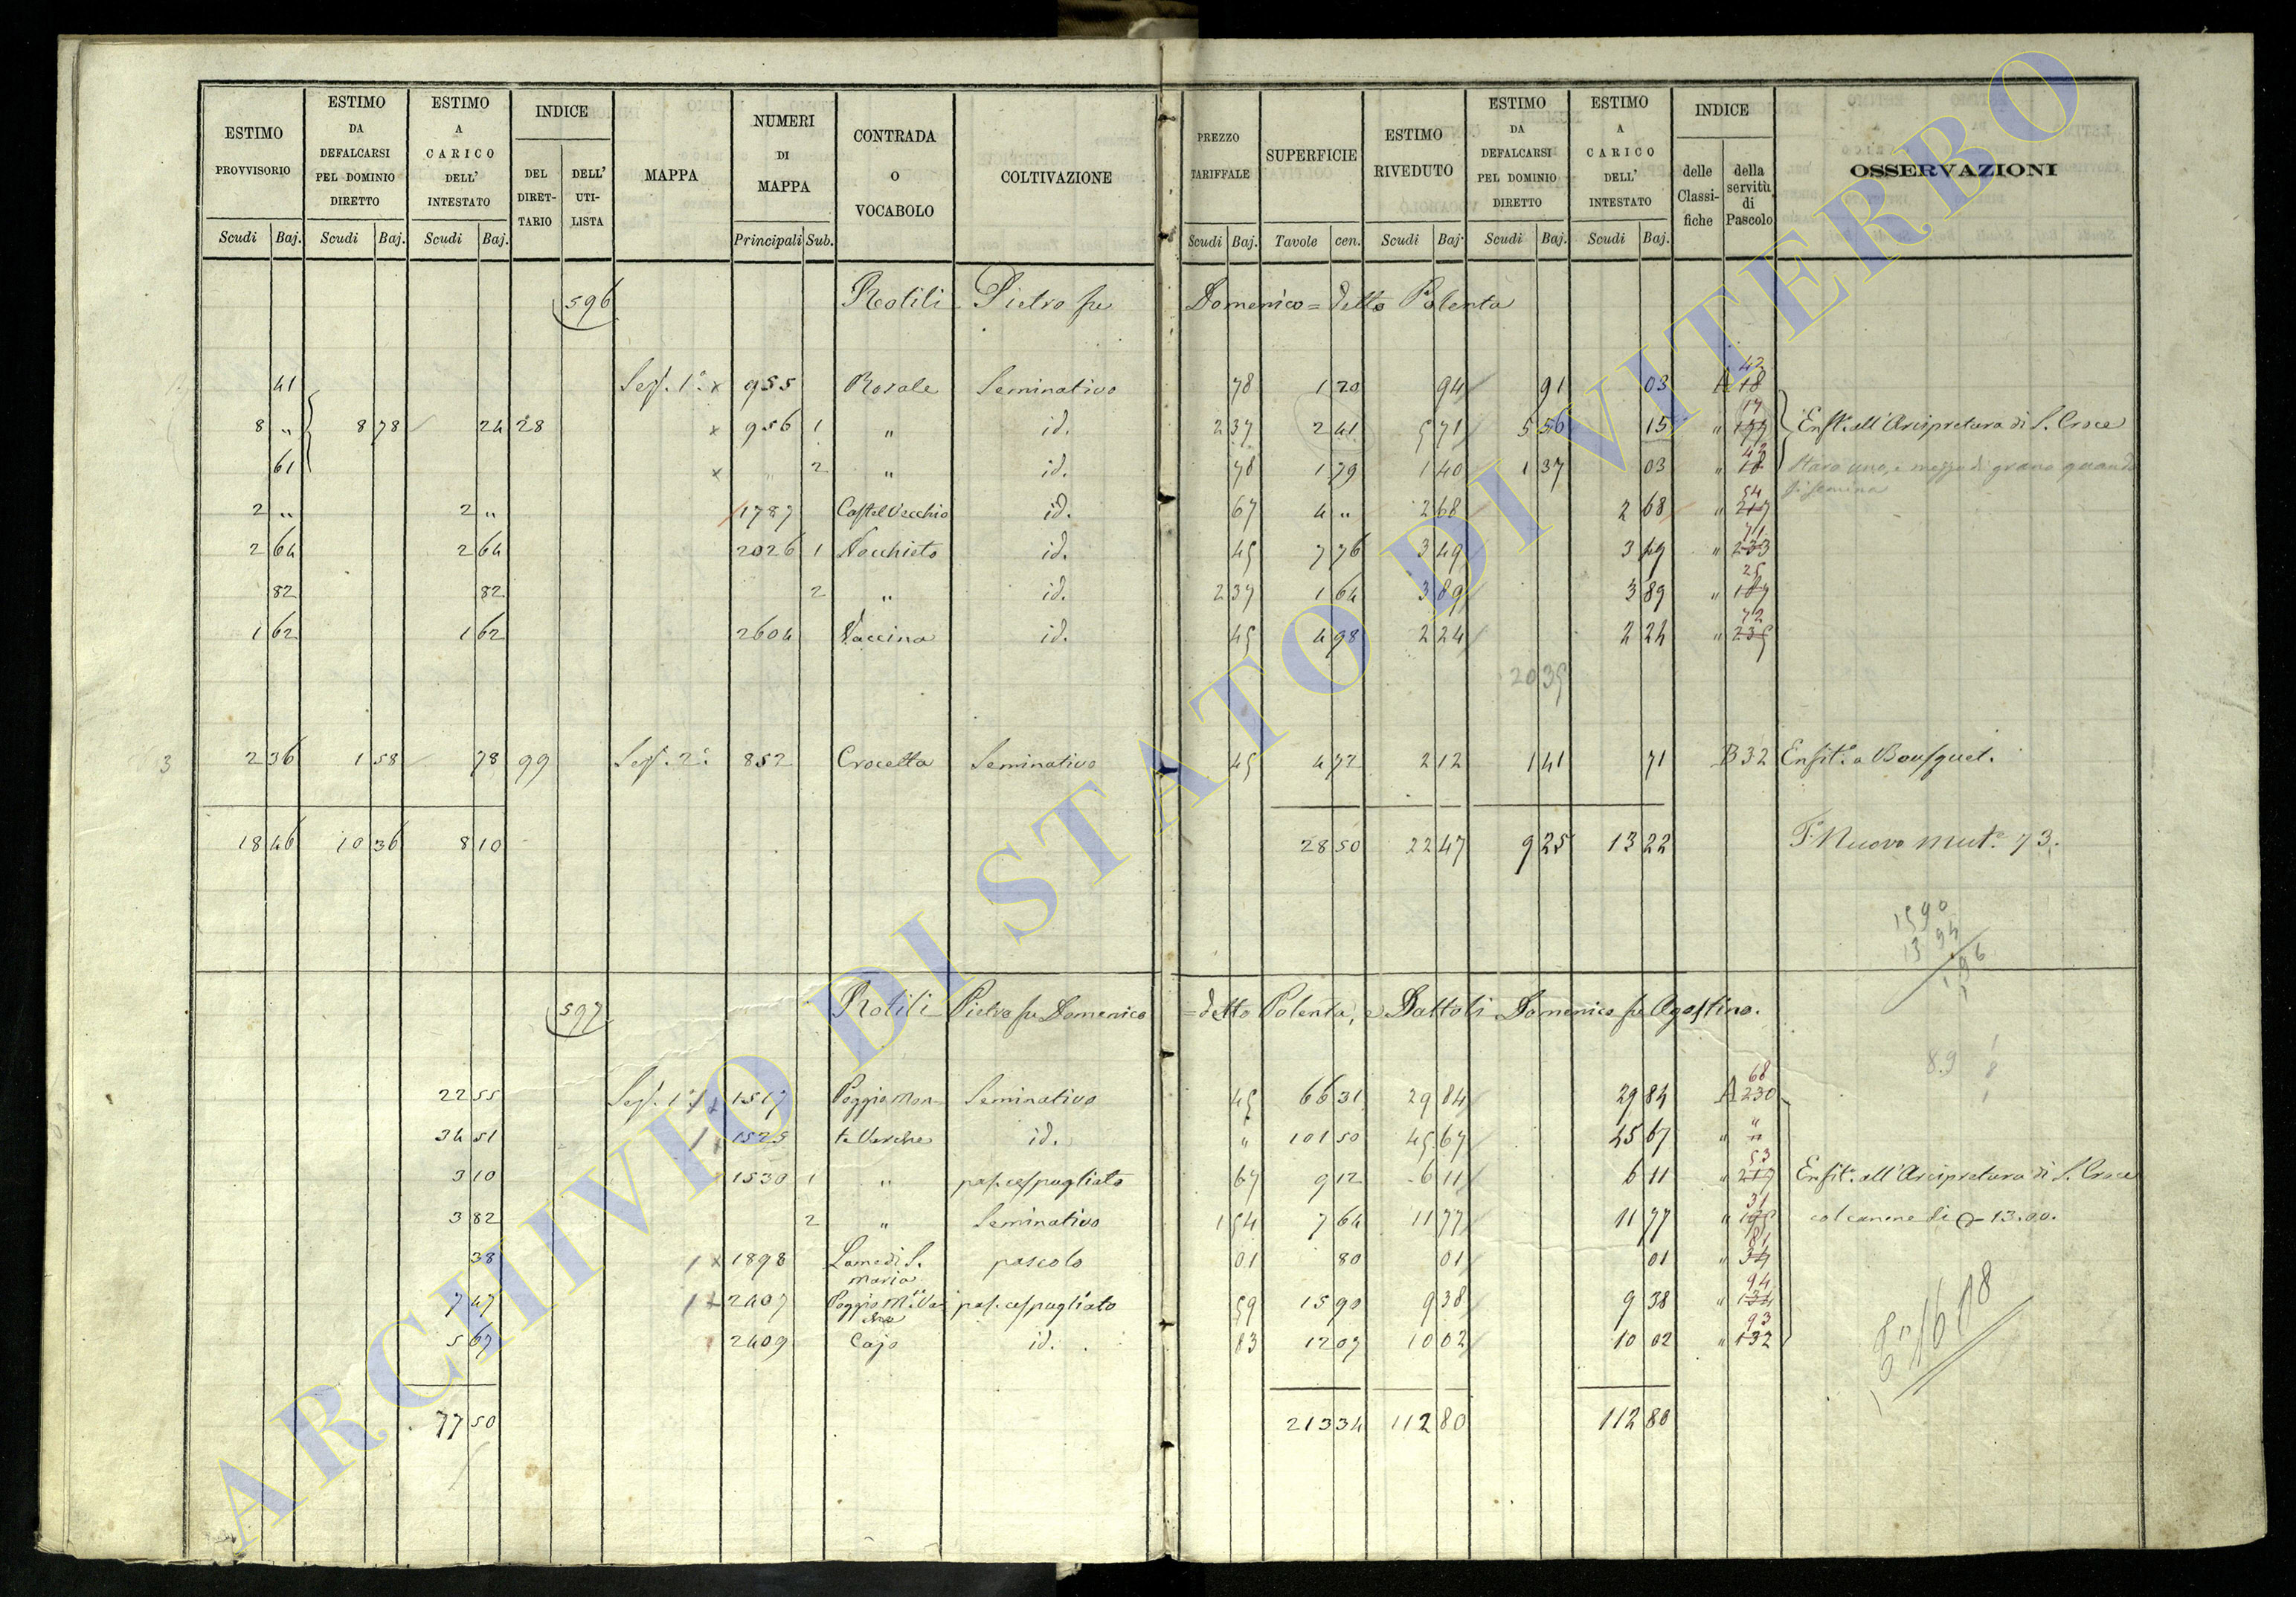 ESTIMO PROVVISORIO | ESTIMO DA DEFALCARSI PEL DOMINIO DIRETTO | ESTIMO A CARICO DELL' INTESTATO | INDICE DEL DIRET-TARIO | DELL' UTI-LISTA | MAPPA | NUMERI DI MAPPA | CONTRADA O VOCABOLO | COLTIVAZIONE | PREZZO TARIFFALE | SUPERFICIE | ESTIMO RIVEDUTO | ESTIMO DA DEFALCARSI PEL DOMINIO DIRETTO | ESTIMO A CARICO DELL' INTESTATO | INDICE delle Classi-fiche | della servitù di Pascolo | OSSERVAZIONI
Scudi Baj. | Scudi Baj. | Scudi Baj. | Principali Sub. | Scudi Baj. | Tavole cen. | Scudi Baj. | Scudi Baj. | Scudi Baj.
596 Rotili Pietro fu Domenico = detto Polenta
41 | Sez. 1a x 955 | Rosale | Seminativo | 78 | 1 20 | 94 | 91 | 03 | A 18 42
8 " | 8 78 | 24 | 28 | x 956 1 | " | id. | 2 37 | 2 41 | 5 71 | 5 56 | 15 | " 177 17 | Enfit. all'Arcipretura di S. Croce
61 | x " 2 | " | id. | 78 | 1 79 | 1 40 | 1 37 | 03 | " 18 42 | Staro uno, e mezzo di grano quando si semina
2 " | 2 " | 1787 | Castel Vecchio | id. | 67 | 4 " | 2 68 | 2 68 | " 217 54
2 64 | 2 64 | 2026 1 | Nocchieto | id. | 45 | 7 76 | 3 49 | 3 49 | " 233 71
82 | 82 | 2 | " | id. | 2 37 | 1 64 | 3 89 | 3 89 | " 187 25
1 62 | 1 62 | 2604 | Vaccina | id. | 45 | 4 98 | 2 24 | 2 24 | " 235 72
20 35
3 | 2 36 | 1 58 | 78 | 99 | Sez. 2a | 852 | Crocetta | Seminativo | 45 | 4 72 | 2 12 | 1 41 | 71 | B 32 | Enfit. a Bousquet.
18 46 | 10 36 | 8 10 | 28 50 | 22 47 | 9 25 | 13 22 | Fo Nuovo Mut. 73.
15 90
13 94
1 96
597 Rotili Pietro fu Domenico = detto Polenta, e Battoli Domenico fu Agostino.
89
22 55 | Sez. 1a x 1517 | Poggio Mon- | Seminativo | 45 | 66 31 | 29 84 | 29 84 | A 230 68
34 51 | 1525 | te Varche | id. | " | 101 50 | 45 67 | 45 67 | " "
3 10 | 1530 1 | " | pas. cespugliato | 67 | 9 12 | 6 11 | 6 11 | " 217 53 | Enfit. all'Arcipretura di S. Croce
3 82 | 2 | " | Seminativo | 1 54 | 7 64 | 11 77 | 11 77 | " 195 31 | col canone di 13.00.
38 | x 1898 | Lame di S. Maria | pascolo | 01 | 80 | 01 | 01 | " 34 81
7 47 | x 2407 | Poggio M. Varche | pas. cespugliato | 59 | 15 90 | 9 38 | 9 38 | " 134 94
5 67 | 2409 | Cajo | id. | 83 | 12 07 | 10 02 | 10 02 | " 132 93
77 50 | 213 34 | 112 80 | 112 80
ARCHIVIO DI STATO DI VITERBO